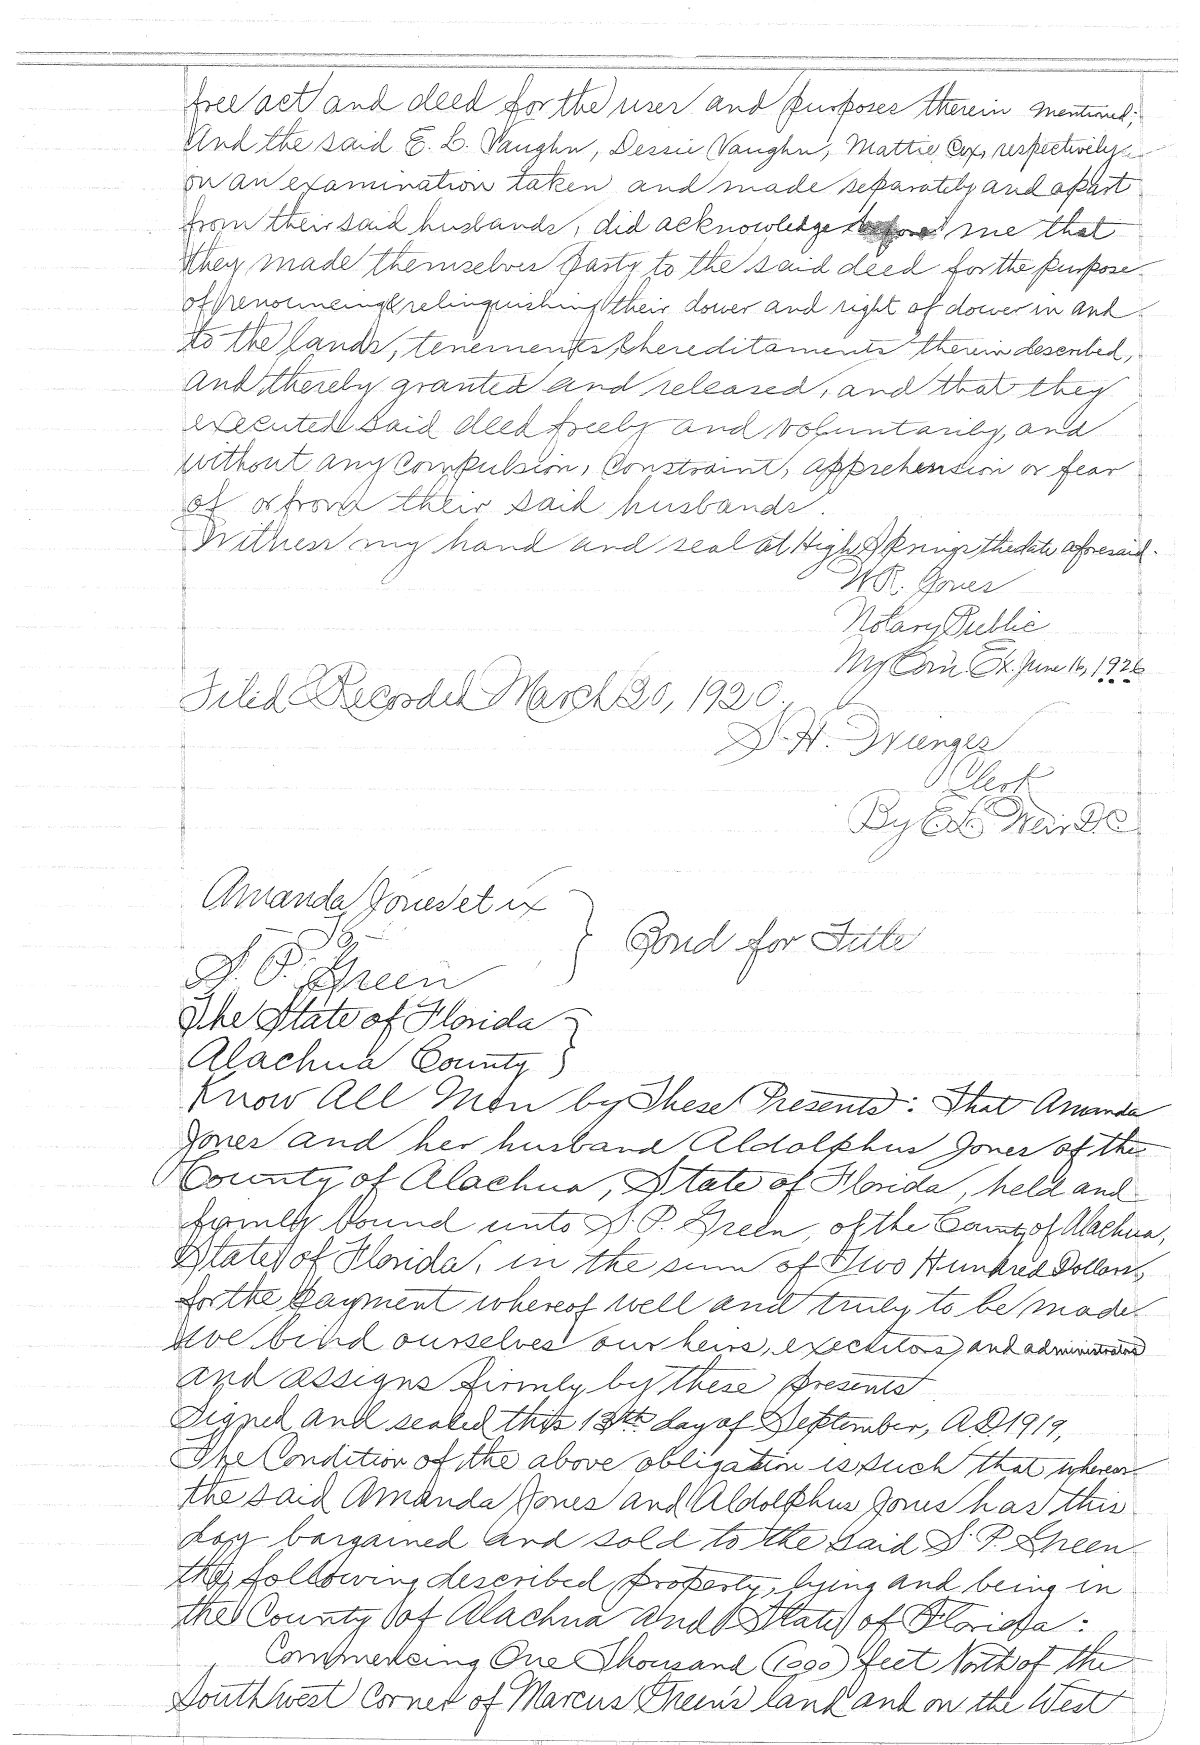 free act and deed for the uses and purposes therein mentioned;
And the said E. L. Vaughn, Dessie Vaughn, Mattie Cox, respectively
on an examination taken and made separately and apart
from their said husbands, did acknowledge before me that
they made themselves party to the said deed for the purpose
of renouncing & relinquishing their dower and right of dower in and
to the lands, tenements, & hereditaments therein described,
and thereby granted and released, and that they
executed said deed freely and voluntarily, and
without any compulsion, constraint, apprehension or fear
of or from their said husbands.
Witness my hand and seal at High Springs the date aforesaid.
W.R. Jones
Notary Public
My Com. Ex. June 16, 1926
Filed & Recorded March 20, 1920.
S. H. Wienges
Clerk
By E L Weir D C
Amanda Jones et ix
To
S. P. Green
Bond for Title
The State of Florida
Alachua County
Know All Men by These Presents: That Amanda
Jones and her husband Aldolphus Jones of the
County of Alachua, State of Florida, held and
firmly bound unto S. P. Green, of the County of Alachua,
State of Florida, in the sum of Two Hundred Dollars,
for the payment whereof well and truly to be made
we bind ourselves our heirs, executors, and administrators
and assigns firmly by these presents
Signed and sealed this 13th day of September, A.D 1919,
The Condition of the above obligation is such that whereas
the said Amanda Jones and Aldolphus Jones has this
day bargained and sold to the said S. P. Green
the following described property, lying and being in
the County of Alachua and State of Florida:
Commencing One Thousand (1000) feet North of the
South west corner of Marcus Green's land and on the West